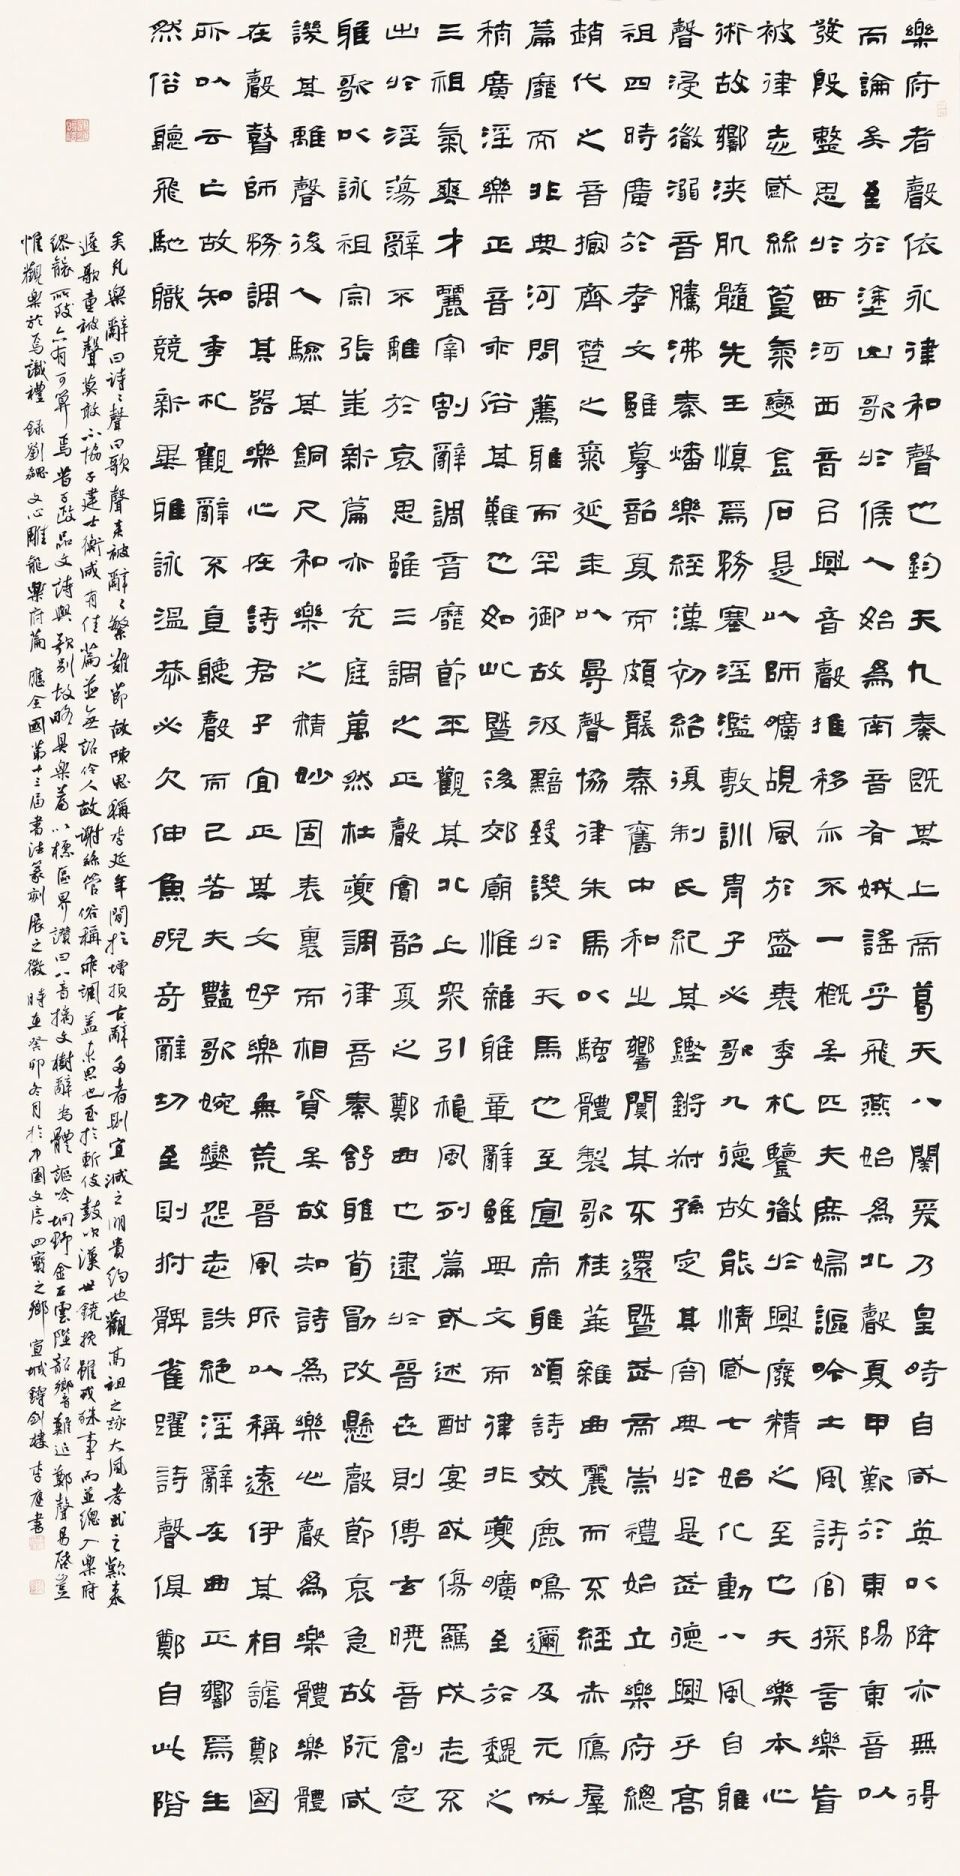 樂府者聲依永律和聲也鈞天九奏既其上帝葛天八闋爰乃皇時自咸英以降亦無得
而論矣至於塗山歌於候人始為南音有娀謠乎飛燕始為北聲夏甲歎於東陽東音以
發殷整思於西河西音以興音聲推移亦不一概矣匹夫庶婦謳吟土風詩官採言樂盲
被律志感絲篁氣變金石是以師曠覘風於盛衰季札鑒微於興廢精之至也夫樂本心
術故響浹肌髓先王慎焉務塞淫濫敷訓胄子必歌九德故能情感七始化動八風自雅
聲浸微溺音騰沸秦燔樂經漢初紹復制氏紀其鏗鏘叔孫定其容典於是武德興乎高
祖四時廣於孝文雖摹韶夏而頗襲秦舊中和之響闃其不還暨武帝崇禮始立樂府總
趙代之音撮齊楚之氣延年以曼聲協律朱馬以騷體製歌桂華雜曲麗而不經赤鴈羣
篇靡而非典河間薦雅而罕御故汲黯致譏於天馬也至宣帝雅頌詩效鹿鳴邇及元成
稍廣淫樂正音乖俗其難也如此暨後郊廟惟雜雅章辭雖典文而律非夔曠至於魏之
三祖氣爽才麗宰割辭調音靡節平觀其北上眾引秋風列篇或述酣宴或傷羈戍志不
出於淫蕩辭不離於哀思雖三調之正聲實韶夏之鄭曲也逮於晉世則傅玄曉音創定
雅歌以詠祖宗張華新篇亦充庭萬然杜夔調律音奏舒雅荀勖改懸聲節哀急故阮咸
譏其離聲後人驗其銅尺和樂之精妙固表裏而相資矣故知詩為樂心聲為樂體樂體
在聲瞽師務調其器樂心在詩君子宜正其文好樂無荒晉風所以稱遠伊其相謔鄭國
所以云亡故知季札觀辭不直聽聲而已若夫豔歌婉孌怨志訣絕淫辭在曲正響焉生
然俗聽飛馳職競新異雅詠溫恭必欠伸魚睨奇辭切至則拊髀雀躍詩聲俱鄭自此階
矣凡樂辭曰詩〻聲曰歌聲來被辭〻繁難節故陳思稱李延年閒於增損古辭多者則宜減之明貴約也觀高祖之詠大風孝武之歎來
遲歌童被聲莫敢不協子建士衡咸有佳篇並無詔伶人故謝絲管俗稱乖調蓋未思也至於斬伎鼓吹漢世鐃挽雖戎殊事而並總入樂府
繆襲所致亦有可算焉昔子政品文詩與歌別故略具樂篇以標區界讚曰八音摛文樹辭為體謳吟坰野金石雲陛韶響難追鄭聲易啓豈
惟觀樂於焉識禮 錄劉勰文心雕龍樂府篇應全國第十三屆書法篆刻展之徵時在癸卯冬月於中國文房四寶之鄉宣城鑄劍樓李庭書